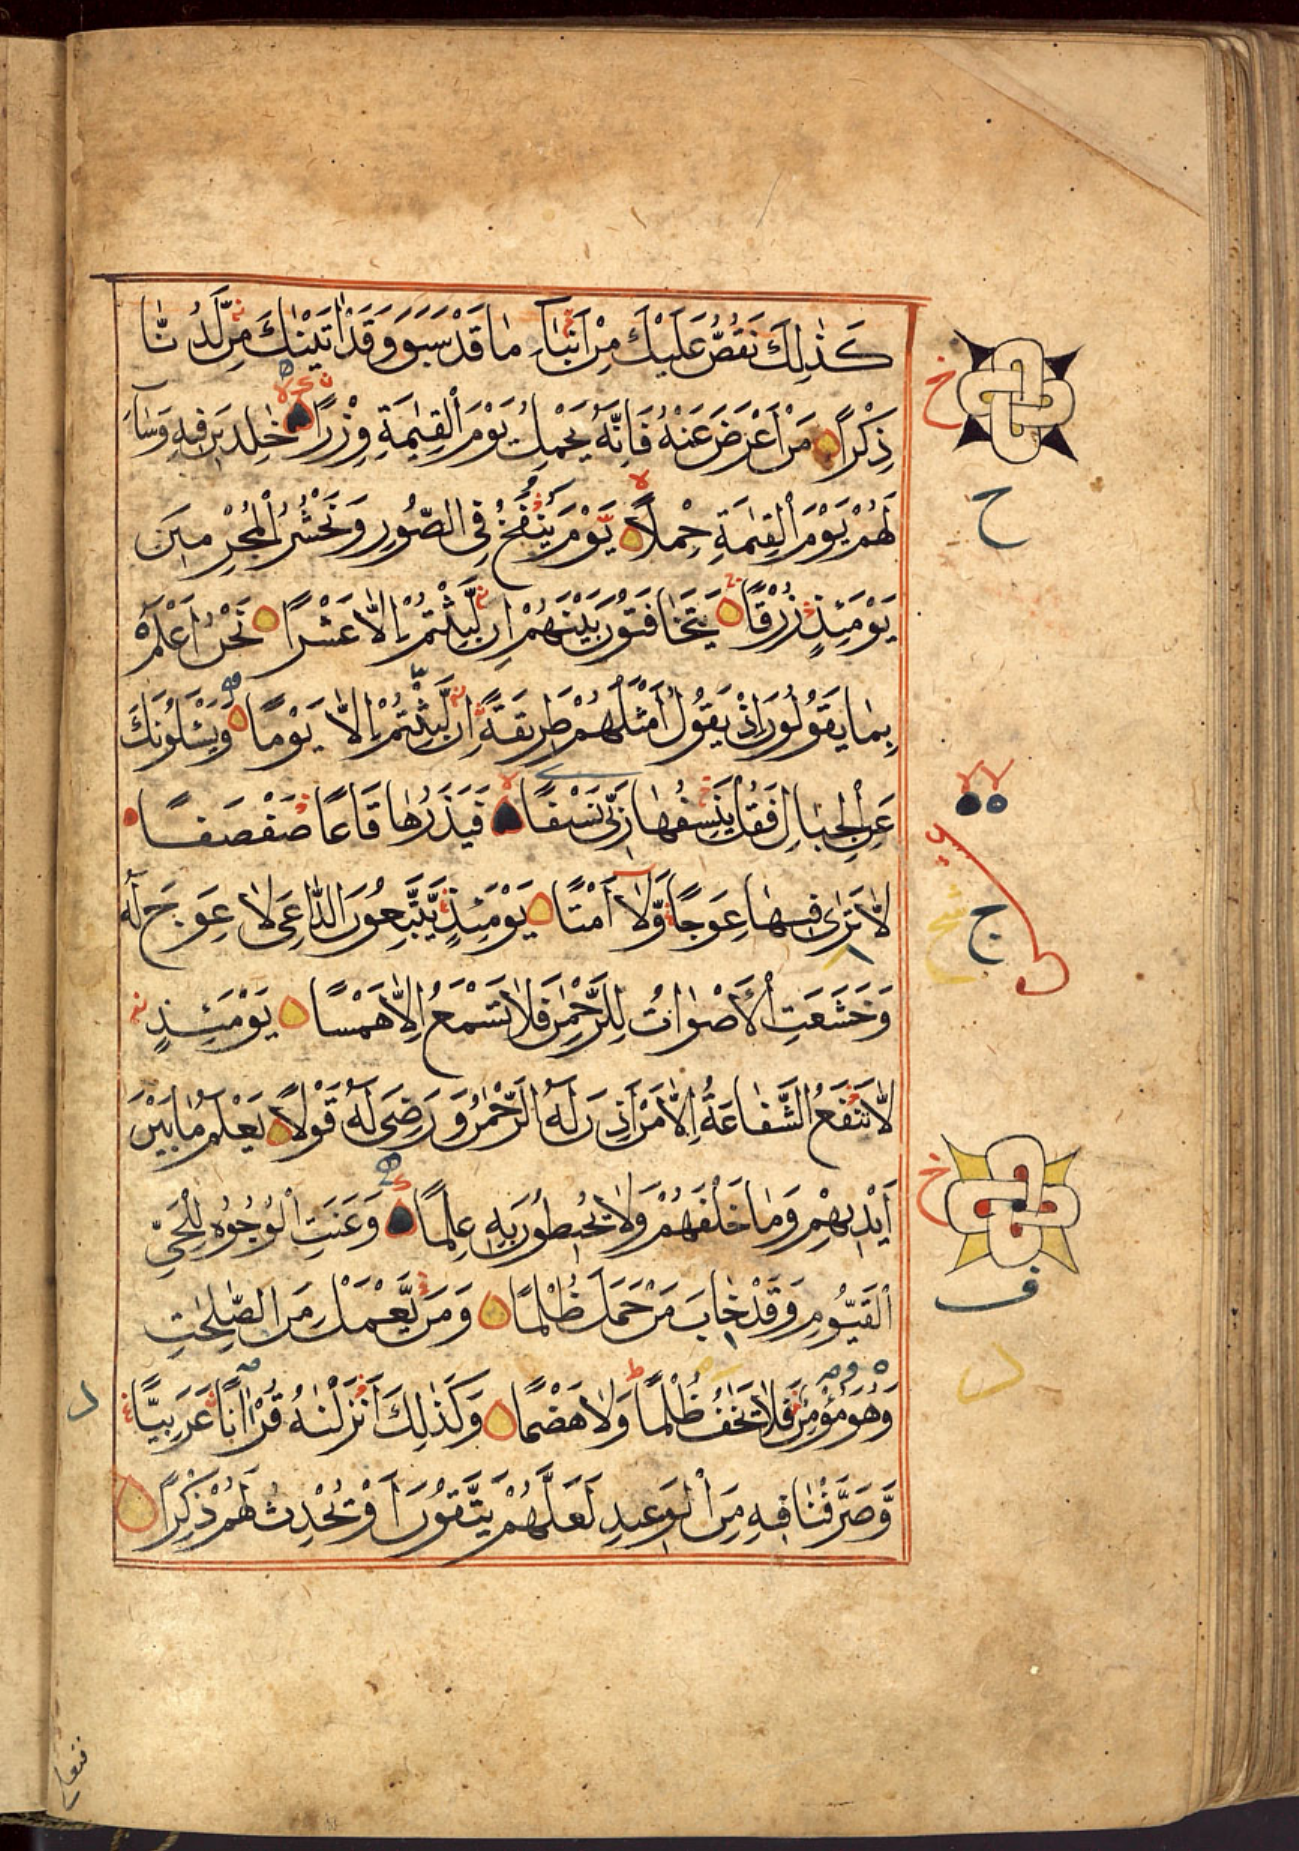 كَذٰلِكَ نَقُصُّ عَلَيْكَ مِنْ اَنْبَآءِ مَا قَدْ سَبَقَ وَقَدْ اٰتَيْنٰكَ مِنْ لَّدُنَّا
ذِكْرًا مَنْ اَعْرَضَ عَنْهُ فَاِنَّهُ يَحْمِلُ يَوْمَ الْقِيٰمَةِ وِزْرًا خٰلِدِيْنَ فِيْهِ وَسَآءَ
لَهُمْ يَوْمَ الْقِيٰمَةِ حِمْلًا يَّوْمَ يُنْفَخُ فِى الصُّوْرِ وَنَحْشُرُ الْمُجْرِمِيْنَ
يَوْمَئِذٍ زُرْقًا يَّتَخَافَتُوْنَ بَيْنَهُمْ اِنْ لَّبِثْتُمْ اِلَّا عَشْرًا نَحْنُ اَعْلَمُ
بِمَا يَقُوْلُوْنَ اِذْ يَقُوْلُ اَمْثَلُهُمْ طَرِيْقَةً اِنْ لَّبِثْتُمْ اِلَّا يَوْمًا وَيَسْـَٔلُوْنَكَ
عَنِ الْجِبَالِ فَقُلْ يَنْسِفُهَا رَبِّىْ نَسْفًا فَيَذَرُهَا قَاعًا صَفْصَفًا
لَّا تَرٰى فِيْهَا عِوَجًا وَّلَآ اَمْتًا يَوْمَئِذٍ يَّتَّبِعُوْنَ الدَّاعِىَ لَا عِوَجَ لَهُ
وَخَشَعَتِ الْاَصْوَاتُ لِلرَّحْمٰنِ فَلَا تَسْمَعُ اِلَّا هَمْسًا يَوْمَئِذٍ
لَّا تَنْفَعُ الشَّفَاعَةُ اِلَّا مَنْ اَذِنَ لَهُ الرَّحْمٰنُ وَرَضِىَ لَهُ قَوْلًا يَعْلَمُ مَا بَيْنَ
اَيْدِيْهِمْ وَمَا خَلْفَهُمْ وَلَا يُحِيْطُوْنَ بِهِ عِلْمًا وَعَنَتِ الْوُجُوْهُ لِلْحَىِّ
الْقَيُّوْمِ وَقَدْ خَابَ مَنْ حَمَلَ ظُلْمًا وَمَنْ يَّعْمَلْ مِنَ الصّٰلِحٰتِ
وَهُوَ مُؤْمِنٌ فَلَا يَخٰفُ ظُلْمًا وَلَا هَضْمًا وَكَذٰلِكَ اَنْزَلْنٰهُ قُرْاٰنًا عَرَبِيًّا
وَّصَرَّفْنَا فِيْهِ مِنَ الْوَعِيْدِ لَعَلَّهُمْ يَتَّقُوْنَ اَوْ يُحْدِثُ لَهُمْ ذِكْرًا